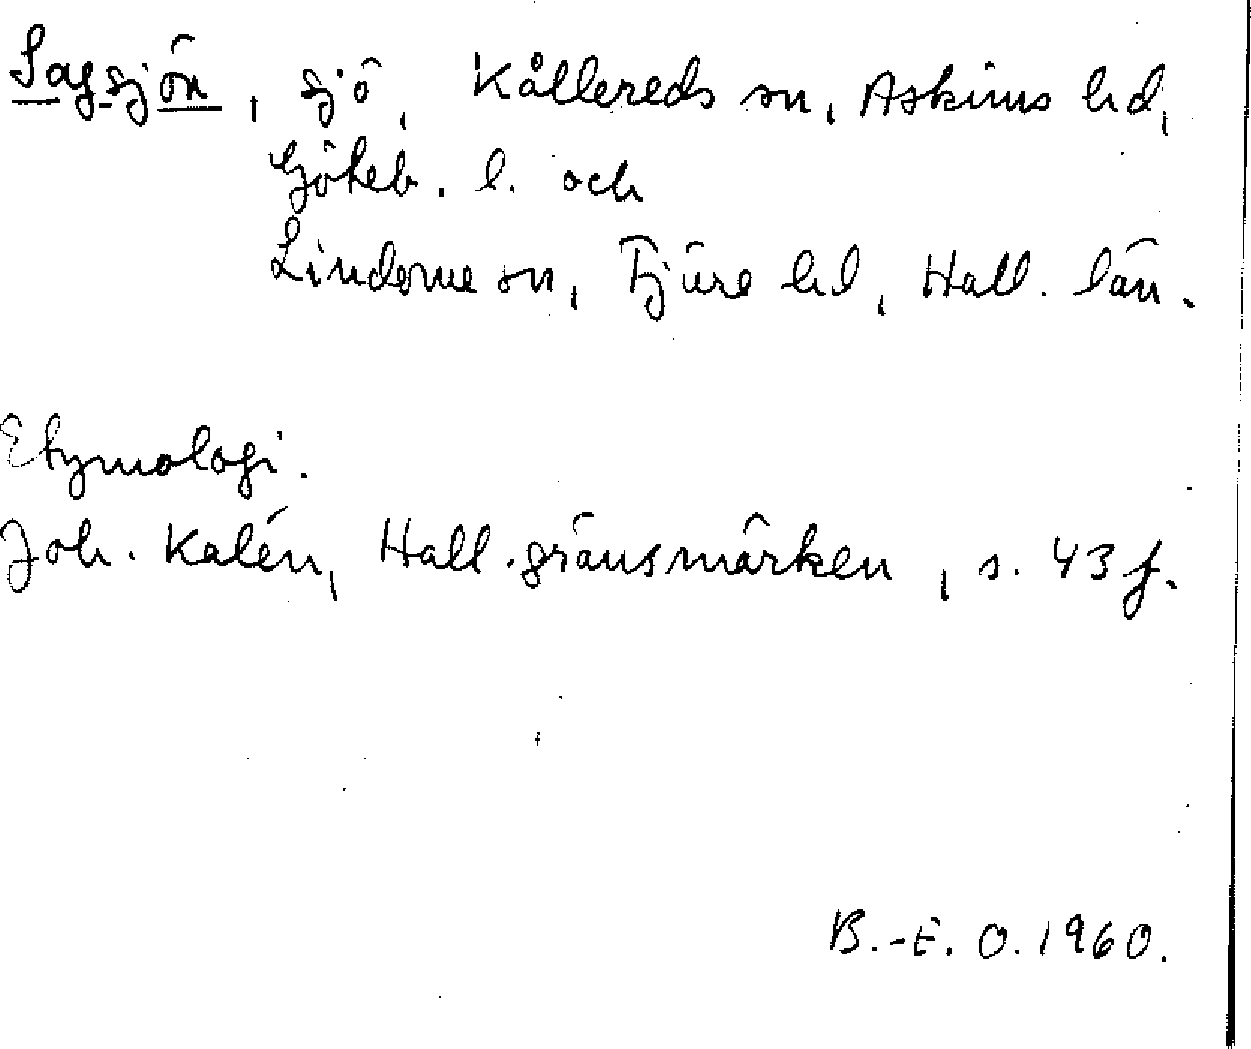 Sagsjön, sjö, Kållereds sn, Askims hd,
Göteb. l. och
Lindome sn, Fjäre hd, Hall. län.
Etymologi.
Joh. Kalén, Hall. gränsmärken, s. 43 f.
B.-E. O. 1960.